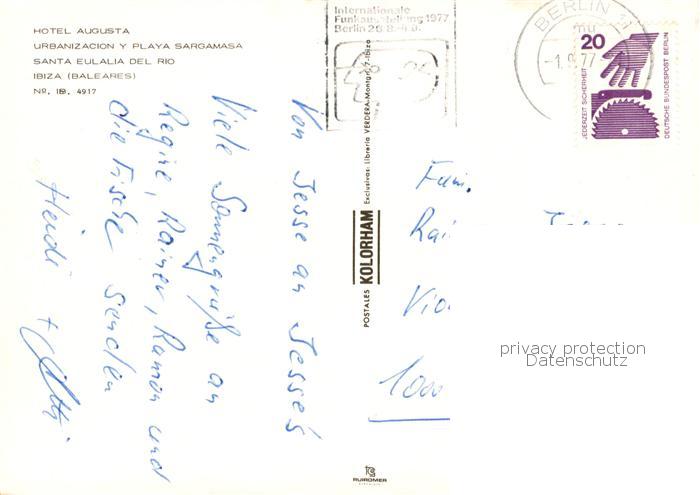 HOTEL AUGUSTA
URBANIZACION Y PLAYA SARGAMASA
SANTA EULALIA DEL RIO
IBIZA (BALEARES)
NR. ID. 4917
Von Jesse an Jesse's
Viele Sonnengrüße an
Regine, Rainer, Ramon und
die Fische senden
Heidi +
POSTALES KOLORHAM Exclusivas: Libreria VERDERA-Montgri, 7-Ibiza
RUIROMER
Internationale
Funkausstellung 1977
Berlin 26.8.-4.9.
BERLIN 1
-1.9.77
20
JEDERZEIT SICHERHEIT
DEUTSCHE BUNDESPOST BERLIN
Fam.
Rai
Vio
1000
privacy protection
Datenschutz